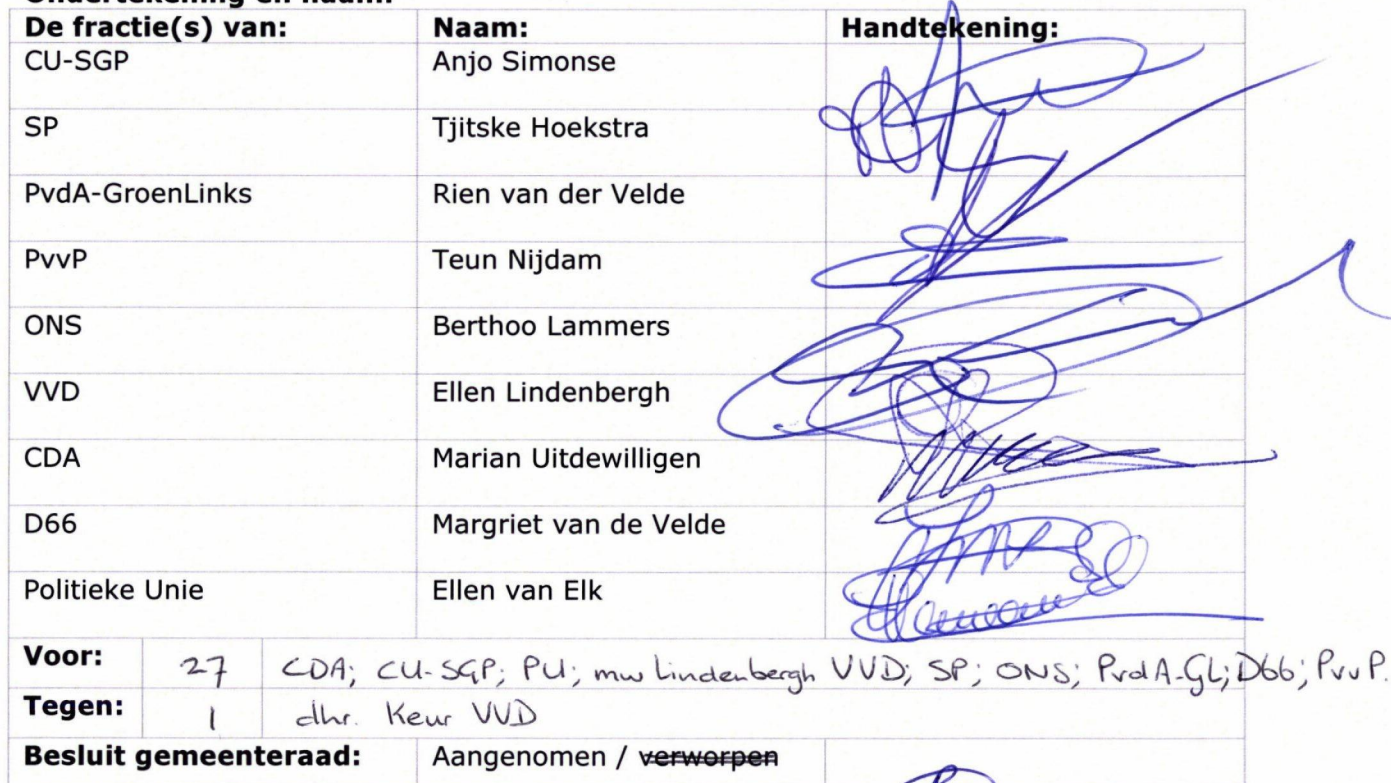 De fractie(s) van: Naam: Handtekening:
CU-SGP Anjo Simonse
SP Tjitske Hoekstra
PvdA-GroenLinks Rien van der Velde
PvvP Teun Nijdam
ONS Berthoo Lammers
VVD Ellen Lindenbergh
CDA Marian Uitdewilligen
D66 Margriet van de Velde
Politieke Unie Ellen van Elk
Voor: 27 CDA; CU-SGP; PU; mw Lindenbergh VVD; SP; ONS; PvdA-GL; D66; PvvP.
Tegen: 1 dhr. Keur VVD
Besluit gemeenteraad: Aangenomen / verworpen